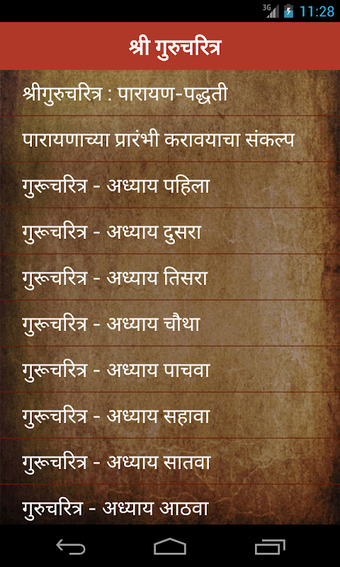 3G 11:28
श्री गुरुचरित्र
श्रीगुरुचरित्र : पारायण-पद्धती
पारायणाच्या प्रारंभी करावयाचा संकल्प
गुरूचरित्र - अध्याय पहिला
गुरूचरित्र - अध्याय दुसरा
गुरूचरित्र - अध्याय तिसरा
गुरूचरित्र - अध्याय चौथा
गुरूचरित्र - अध्याय पाचवा
गुरूचरित्र - अध्याय सहावा
गुरूचरित्र - अध्याय सातवा
गुरुचरित्र - अध्याय आठवा